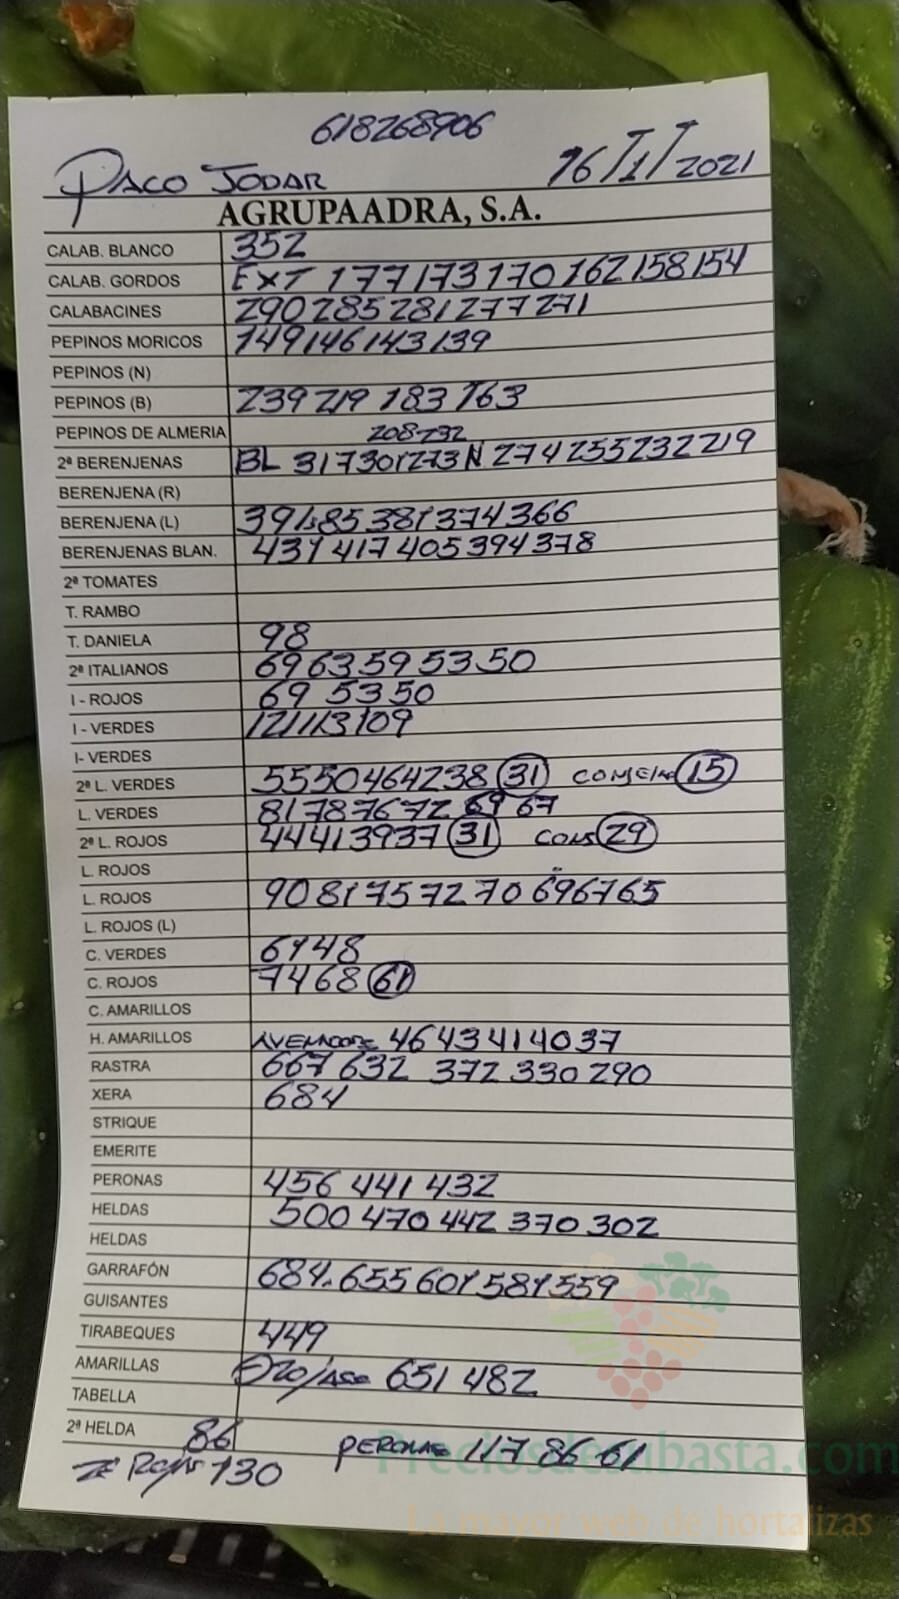 618268906
PACO JODAR 16/1/2021
AGRUPAADRA, S.A.
CALAB. BLANCO 352
CALAB. GORDOS EXT 177 173 170 162 158 154
CALABACINES 290 285 281 277 271
PEPINOS MORICOS 149 146 143 139
PEPINOS (N)
PEPINOS (B) 239 219 183 163
PEPINOS DE ALMERIA 208-232
2ª BERENJENAS BL 317 301 273 N 274 255 232 219
BERENJENA (R)
BERENJENA (L) 391 385 381 374 366
BERENJENAS BLAN. 431 417 405 394 378
2ª TOMATES
T. RAMBO
T. DANIELA 98
2ª ITALIANOS 69 63 59 53 50
I - ROJOS 69 53 50
I - VERDES 121 113 109
I- VERDES
2ª L. VERDES 55 50 46 42 38 31 15
L. VERDES 81 78 76 72 69 67
2ª L. ROJOS 44 41 39 37 31 CONS 29
L. ROJOS
L. ROJOS 90 81 75 72 70 69 67 65
L. ROJOS (L)
C. VERDES 61 48
C. ROJOS 74 68 61
C. AMARILLOS
H. AMARILLOS 46 43 41 40 37
RASTRA 667 632 372 330 290
XERA 684
STRIQUE
EMERITE
PERONAS 456 441 432
HELDAS 500 470 442 370 302
HELDAS
GARRAFÓN 684 655 601 581 559
GUISANTES
TIRABEQUES 449
AMARILLAS 651 482
TABELLA
2ª HELDA 86
PERONAS 117 86 61
130
Preciosdesubasta.com
La mayor web de hortalizas